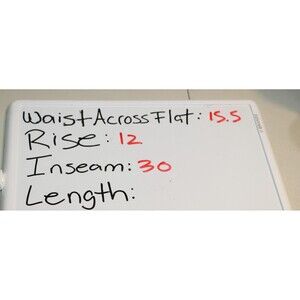 Waist Across Flat: 15.5
Rise: 12
Inseam: 30
Length: